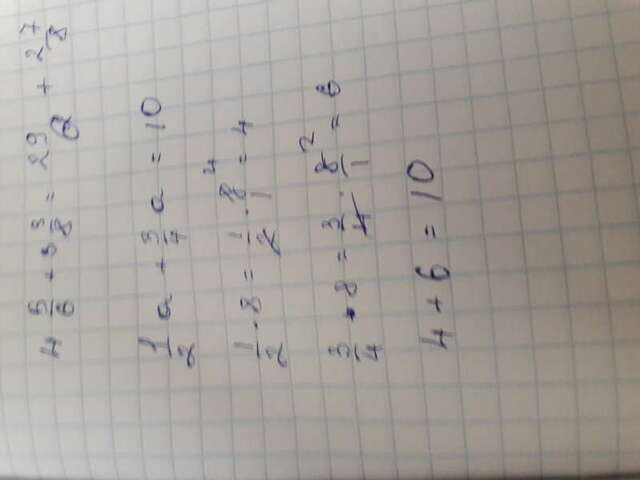 4 5/6 + 3 3/8 = 29/6 + 27/8
1/2 a + 3/4 a = 10
1/2 · 8 = 1/2 · 8/1 4 = 4
3/4 · 8 = 3/4 · 8/1 2 = 6
4 + 6 = 10